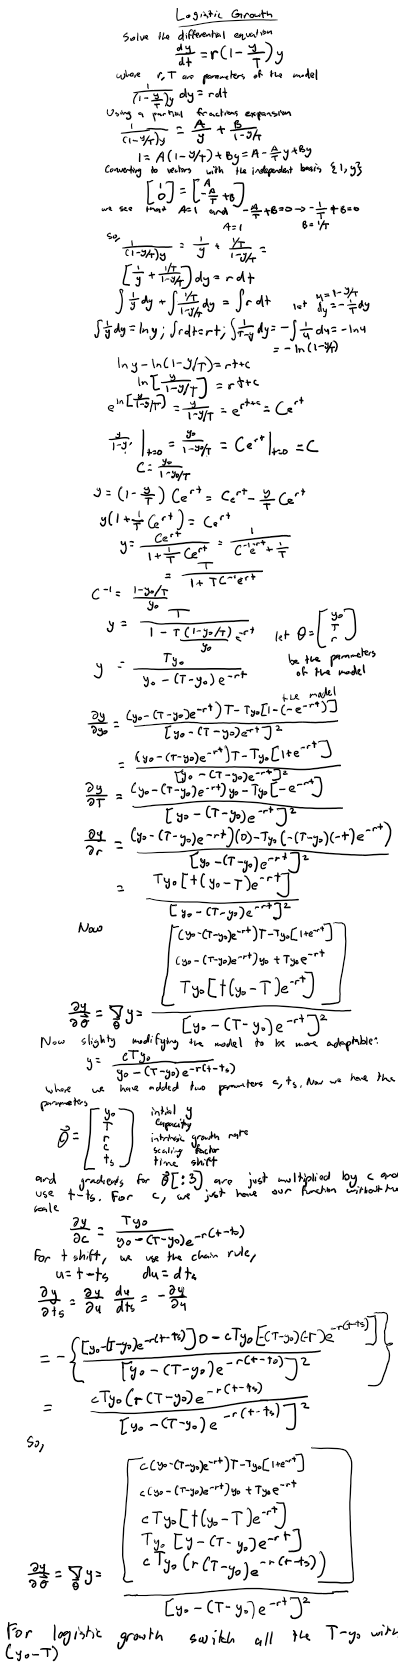 Logistic Growth
Solve the differential equation
dy/dt = r(1 - y/T) y
where r, T are parameters of the model
1/((1-y/T)y) dy = r dt
Using a partial fractions expansion
1/((1-y/T)y) = A/y + B/(1-y/T)
1 = A(1-y/T) + By = A - A/T y + By
Converting to vectors with the independent basis {1, y}
[1 0] = [A -A/T + B]
we see that A=1 and -A/T + B = 0 → -1/T + B = 0
A=1 B=1/T
so, 1/((1-y/T)y) = 1/y + (1/T)/(1-y/T) =
[1/y + (1/T)/(1-y/T)] dy = r dt
∫ 1/y dy + ∫ (1/T)/(1-y/T) dy = ∫ r dt let u = 1-y/T
dy = -1/T dy
∫ 1/y dy = ln y ; ∫ r dt = rt ; ∫ 1/(T-y) dy = -∫ 1/u du = -ln u
= -ln(1-y/T)
ln y - ln(1-y/T) = rt + c
ln[y/(1-y/T)] = rt + c
e^ln[y/(1-y/T)] = y/(1-y/T) = e^(rt+c) = Ce^rt
y/(1-y/T) |t=0 = y₀/(1-y₀/T) = Ce^rt |t=0 = C
C = y₀/(1-y₀/T)
y = (1 - y/T) Ce^rt = Ce^rt - y/T Ce^rt
y(1 + 1/T Ce^rt) = Ce^rt
y = Ce^rt/(1 + 1/T Ce^rt) = 1/(C⁻¹e^-rt + 1/T)
= T/(1 + TC⁻¹e^rt)
C⁻¹ = (1-y₀/T)/y₀
y = T/(1 - T(1-y₀/T)/y₀ e^-rt) let θ = [y₀ T r]
be the parameters
of the model
y = Ty₀/(y₀ - (T-y₀)e^-rt)
the model
∂y/∂y₀ = ((y₀-(T-y₀)e^-rt)T - Ty₀[1-(-e^-rt)])/[y₀-(T-y₀)e^-rt]²
= ((y₀-(T-y₀)e^-rt)T - Ty₀[1+e^-rt])/[y₀-(T-y₀)e^-rt]²
∂y/∂T = ((y₀-(T-y₀)e^-rt)y₀ - Ty₀[-e^-rt])/[y₀-(T-y₀)e^-rt]²
∂y/∂r = ((y₀-(T-y₀)e^-rt)(0) - Ty₀(-(T-y₀)(-t)e^-rt))/[y₀-(T-y₀)e^-rt]²
= Ty₀[t(y₀-T)e^-rt]/[y₀-(T-y₀)e^-rt]²
Now
∂y/∂θ = ∇θ y = [(y₀-(T-y₀)e^-rt)T - Ty₀[1+e^-rt]
(y₀-(T-y₀)e^-rt)y₀ + Ty₀e^-rt
Ty₀[t(y₀-T)e^-rt]]/[y₀-(T-y₀)e^-rt]²
Now slighty modifying the model to be more adaptable:
y = cTy₀/(y₀-(T-y₀)e^-r(t-t₀))
where we have added two parameters c, ts. Now we have the
parameters
θ = [y₀ T r c ts]
intial y
capacity
intrinsic growth rate
scaling factor
time shift
and gradients for θ[:3] are just multiplied by c and
use t-ts. For c, we just have our function without the
scale
∂y/∂c = Ty₀/(y₀-(T-y₀)e^-r(t-t₀))
For t shift, we use the chain rule,
u = t-ts du = dts
∂y/∂ts = ∂y/∂u du/dts = -∂y/∂u
= -{([y₀-(T-y₀)e^-r(t-ts)]0 - cTy₀[-(T-y₀)(-r)e^-r(t-ts)])/[y₀-(T-y₀)e^-r(t-t₀)]²}
= cTy₀(r(T-y₀)e^-r(t-ts))/[y₀-(T-y₀)e^-r(t-ts)]²
So,
∂y/∂θ = ∇θ y = [c(y₀-(T-y₀)e^-rt)T - Ty₀[1+e^-rt]
c(y₀-(T-y₀)e^-rt)y₀ + Ty₀e^-rt
cTy₀[t(y₀-T)e^-rt]
Ty₀[y-(T-y₀)e^-rt]
cTy₀(r(T-y₀)e^-r(t-ts))]/[y₀-(T-y₀)e^-rt]²
For logistic growth switch all the T-y₀ with
(y₀-T)